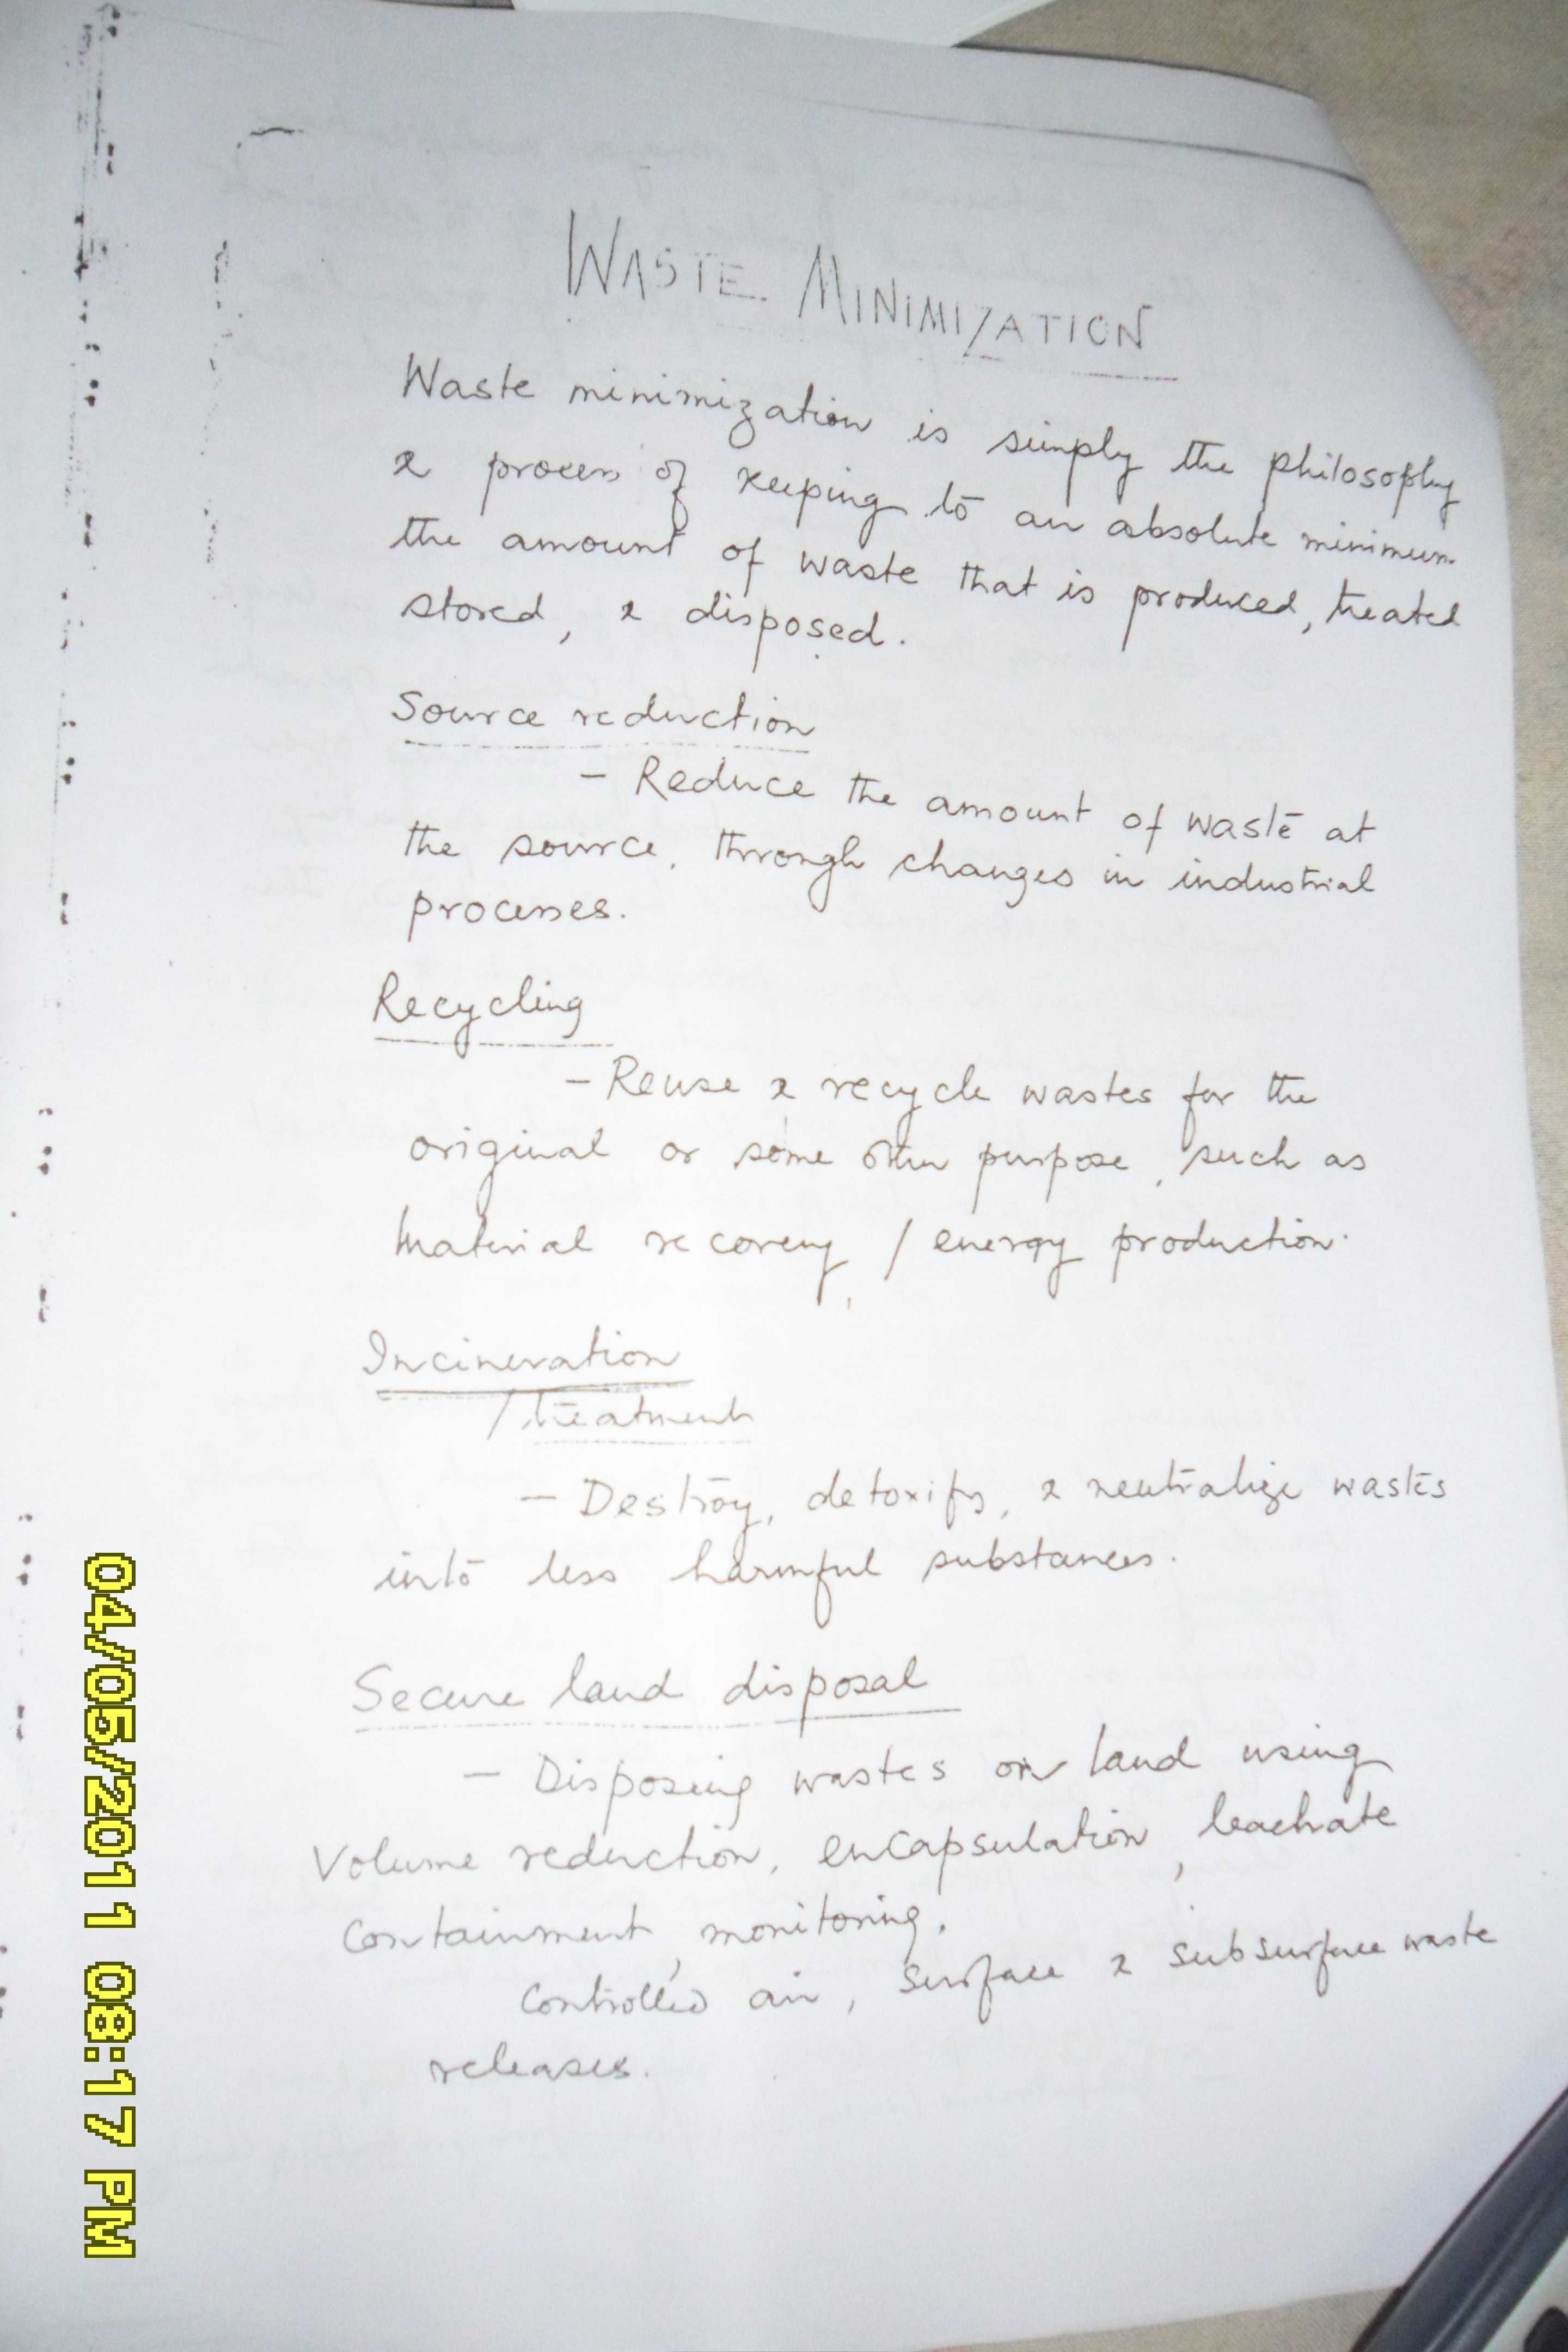 WASTE MINIMIZATION
Waste minimization is simply the philosophy
& process of keeping to an absolute minimum
the amount of waste that is produced, treated
stored, & disposed.
Source reduction
- Reduce the amount of waste at
the source, through changes in industrial
processes.
Recycling
- Reuse & recycle wastes for the
original or some other purpose, such as
material recovery / energy production.
Incineration
/ treatment
- Destroy, detoxify, & neutralize wastes
into less harmful substances.
Secure land disposal
- Disposing wastes on land using
volume reduction, encapsulation, leachate
containment, monitoring.
Controlled air, surface & subsurface waste
releases.
04/05/2011 08:17 PM